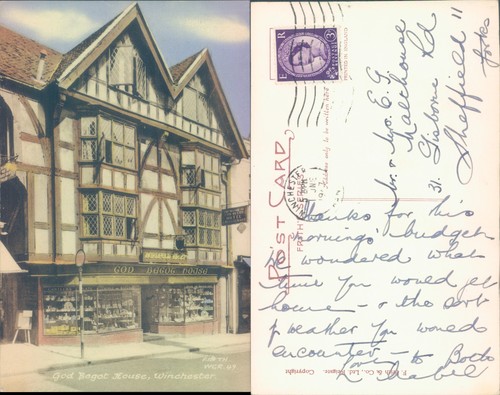 GOD BEGOT HOUSE
FRITH
WCR. 47
God Begot House, Winchester.
POST CARD
FRITH
E R
3
Mr & Mrs E. G.
Malthouse
31. Gisborne Rd
Sheffield 11
Yorks
Thanks for this
morning's budget
we wondered what
time you would get
home - & the sort
of weather you would
encounter - Love to Both
Mabel
F. Frith & Co., Ltd. Reigate. Copyright